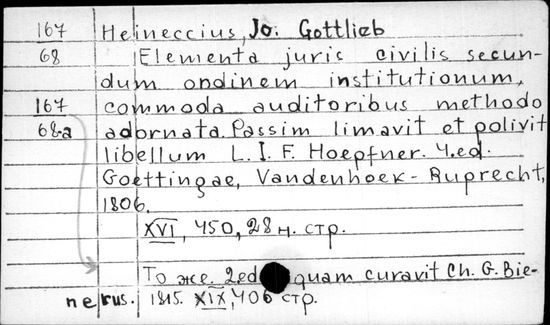 167 Heineccius, Jo. Gottlieb
68 Elementa juris civilis secun-
dum ordinem institutionum,
167 commoda auditoribus methodo
68a adornata. Passim limavit et polivit
libellum L. I. F. Hoepfner. 4.ed.
Goettingae, Vandenhoek-Ruprecht,
1806.
XVI, 450, 28 н. стр.
То же. 2.ed quam curavit Ch. G. Bie-
nerus. 1815. XIX, 406 стр.